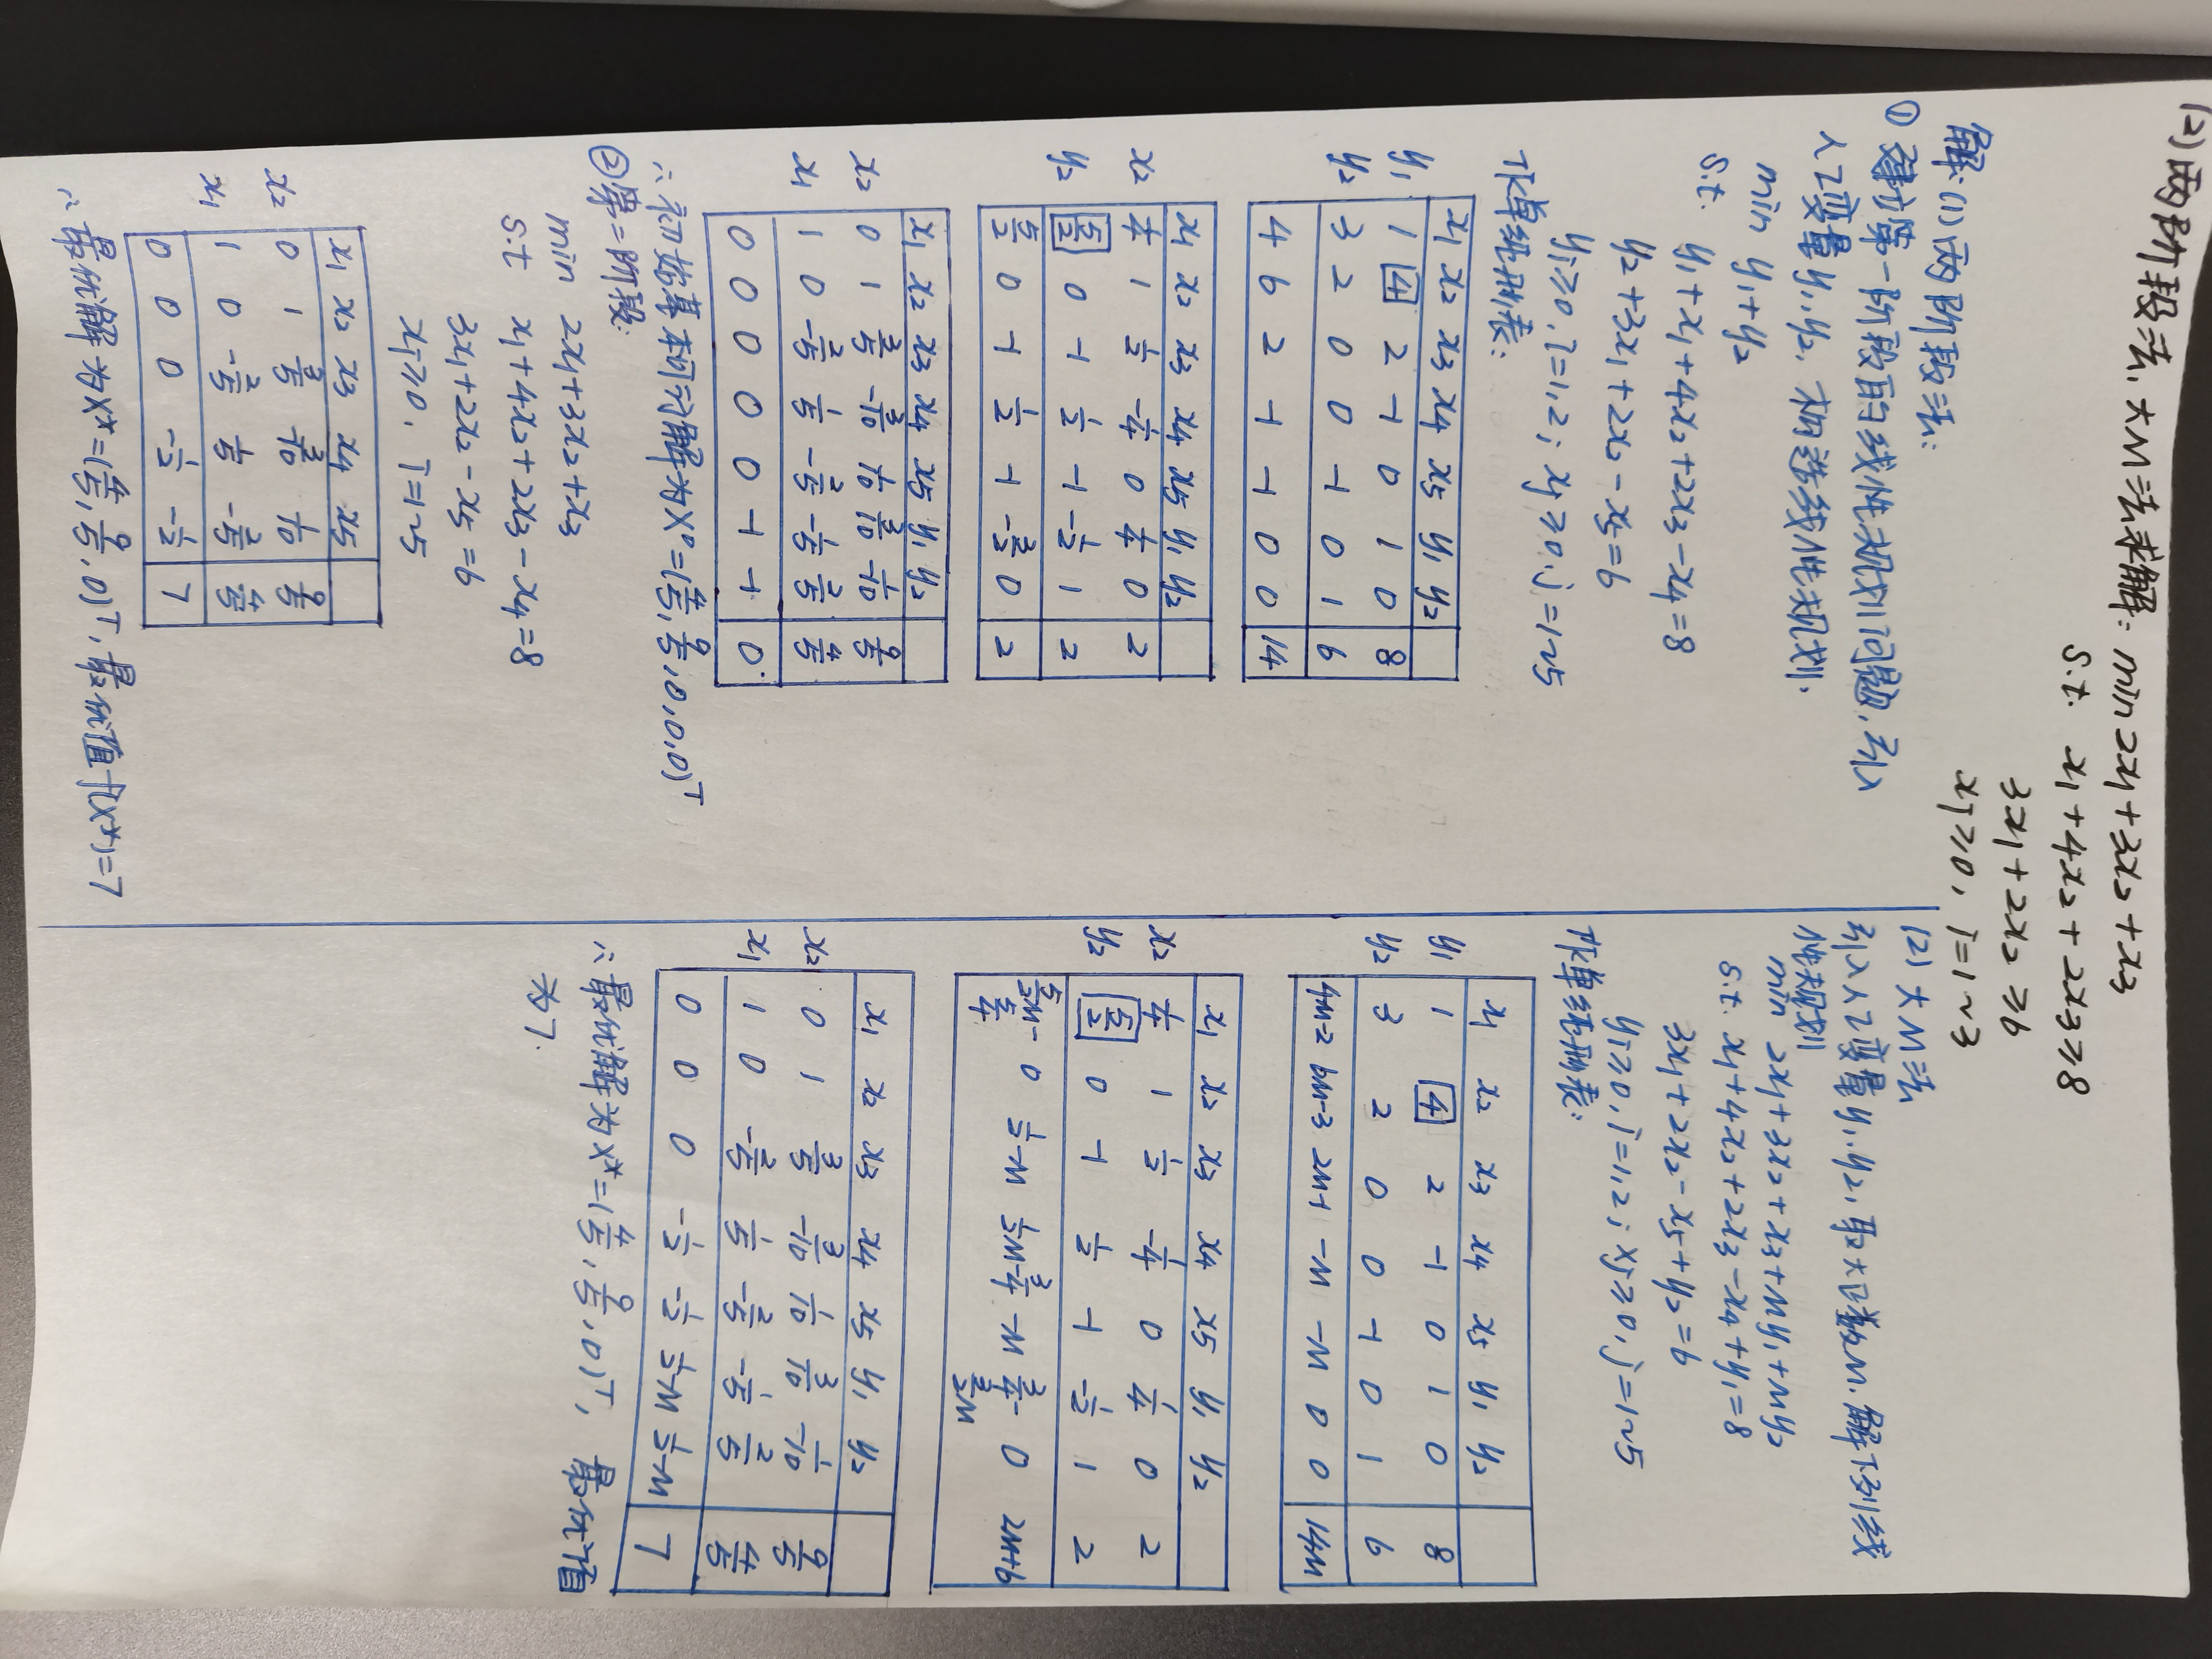 (2)两阶段法、大M法求解: min 2x₁+3x₂+x₃
s.t. x₁+4x₂+2x₃≥8
3x₁+2x₂≥6
xi≥0, i=1~3
解:(1)两阶段法:
① 建立第一阶段的线性规划问题,引入
人工变量y₁,y₂,构造线性规划.
min y₁+y₂
s.t. y₁+x₁+4x₂+2x₃-x₄=8
y₂+3x₁+2x₂-x₅=6
yi≥0,i=1,2; xj≥0,j=1~5
作单纯形表:
x₁ x₂ x₃ x₄ x₅ y₁ y₂
y₁ 1 4 2 -1 0 1 0 8
y₂ 3 2 0 0 -1 0 1 6
4 6 2 -1 -1 0 0 14
x₁ x₂ x₃ x₄ x₅ y₁ y₂
x₂ 1/4 1 1/2 -1/4 0 1/4 0 2
y₂ 5/2 0 -1 1/2 -1 -1/2 1 2
5/2 0 -1 1/2 -1 -3/2 0 2
x₁ x₂ x₃ x₄ x₅ y₁ y₂
x₂ 0 1 3/5 -3/10 1/10 3/10 -1/10 9/5
x₁ 1 0 -2/5 1/5 -2/5 -1/5 2/5 4/5
0 0 0 0 0 -1 -1 0
∴初始基本可行解为X⁰=(4/5, 9/5, 0, 0, 0)ᵀ
②第二阶段:
min 2x₁+3x₂+x₃
s.t x₁+4x₂+2x₃-x₄=8
3x₁+2x₂-x₅=6
xi≥0, i=1~5
x₁ x₂ x₃ x₄ x₅
x₂ 0 1 3/5 -3/10 1/10 9/5
x₁ 1 0 -2/5 1/5 -2/5 4/5
0 0 0 -1/2 -1/2 7
∴最优解为X*=(4/5, 9/5, 0)ᵀ,最优值f(X*)=7
(2) 大M法
引入人工变量y₁,y₂,取大正数M,解下列线
性规划
min 2x₁+3x₂+x₃+My₁+My₂
s.t. x₁+4x₂+2x₃-x₄+y₁=8
3x₁+2x₂-x₅+y₂=6
yi≥0,i=1,2; xj≥0,j=1~5
作单纯形表:
x₁ x₂ x₃ x₄ x₅ y₁ y₂
y₁ 1 4 2 -1 0 1 0 8
y₂ 3 2 0 0 -1 0 1 6
4M-2 6M-3 2M-1 -M -M 0 0 14M
x₁ x₂ x₃ x₄ x₅ y₁ y₂
x₂ 1/4 1 1/2 -1/4 0 1/4 0 2
y₂ 5/2 0 -1 1/2 -1 -1/2 1 2
5/2M-5/4 0 1/2-M 1/2M-3/4 -M 3/4-3/2M 0 2M+6
x₁ x₂ x₃ x₄ x₅ y₁ y₂
x₂ 0 1 3/5 -3/10 1/10 3/10 -1/10 9/5
x₁ 1 0 -2/5 1/5 -2/5 -1/5 2/5 4/5
0 0 0 -1/2 -1/2 1/2-M 1/2-M 7
∴最优解为X*=(4/5, 9/5, 0)ᵀ, 最优值
为7.